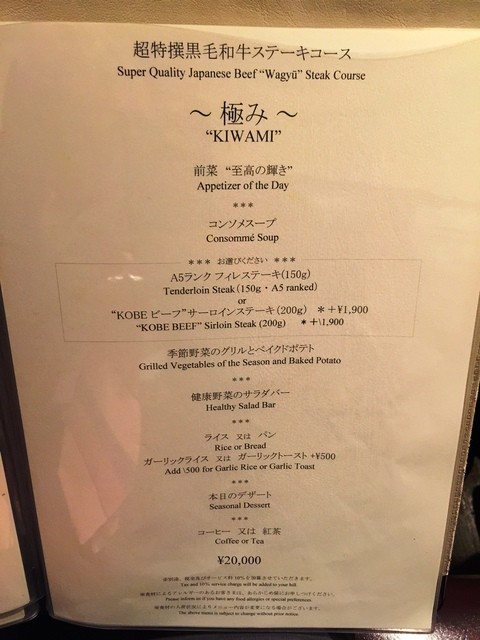 超特撰黒毛和牛ステーキコース
Super Quality Japanese Beef “Wagyū” Steak Course
～ 極み ～
“KIWAMI”
前菜 “至高の輝き”
Appetizer of the Day
***
コンソメスープ
Consommé Soup
*** お選びください ***
A5ランク フィレステーキ(150g)
Tenderloin Steak (150g・A5 ranked)
or
“KOBE ビーフ”サーロインステーキ(200g) ＊+¥1,900
“KOBE BEEF” Sirloin Steak (200g) *+\1,900
季節野菜のグリルとベイクドポテト
Grilled Vegetables of the Season and Baked Potato
***
健康野菜のサラダバー
Healthy Salad Bar
***
ライス 又は パン
Rice or Bread
ガーリックライス 又は ガーリックトースト +¥500
Add \500 for Garlic Rice or Garlic Toast
***
本日のデザート
Seasonal Dessert
***
コーヒー 又は 紅茶
Coffee or Tea
¥20,000
※別途、税金及びサービス料10%を加算させていただきます。
Tax and 10% service charge will be added to your bill.
※食材によるアレルギーのあるお客さまは、あらかじめ係にお申しつけください。
Please inform us if you have any food allergies or special preferences.
※食材の入荷状況によりメニュー内容が変更になる場合がございます。
The above menu is subject to change without prior notice